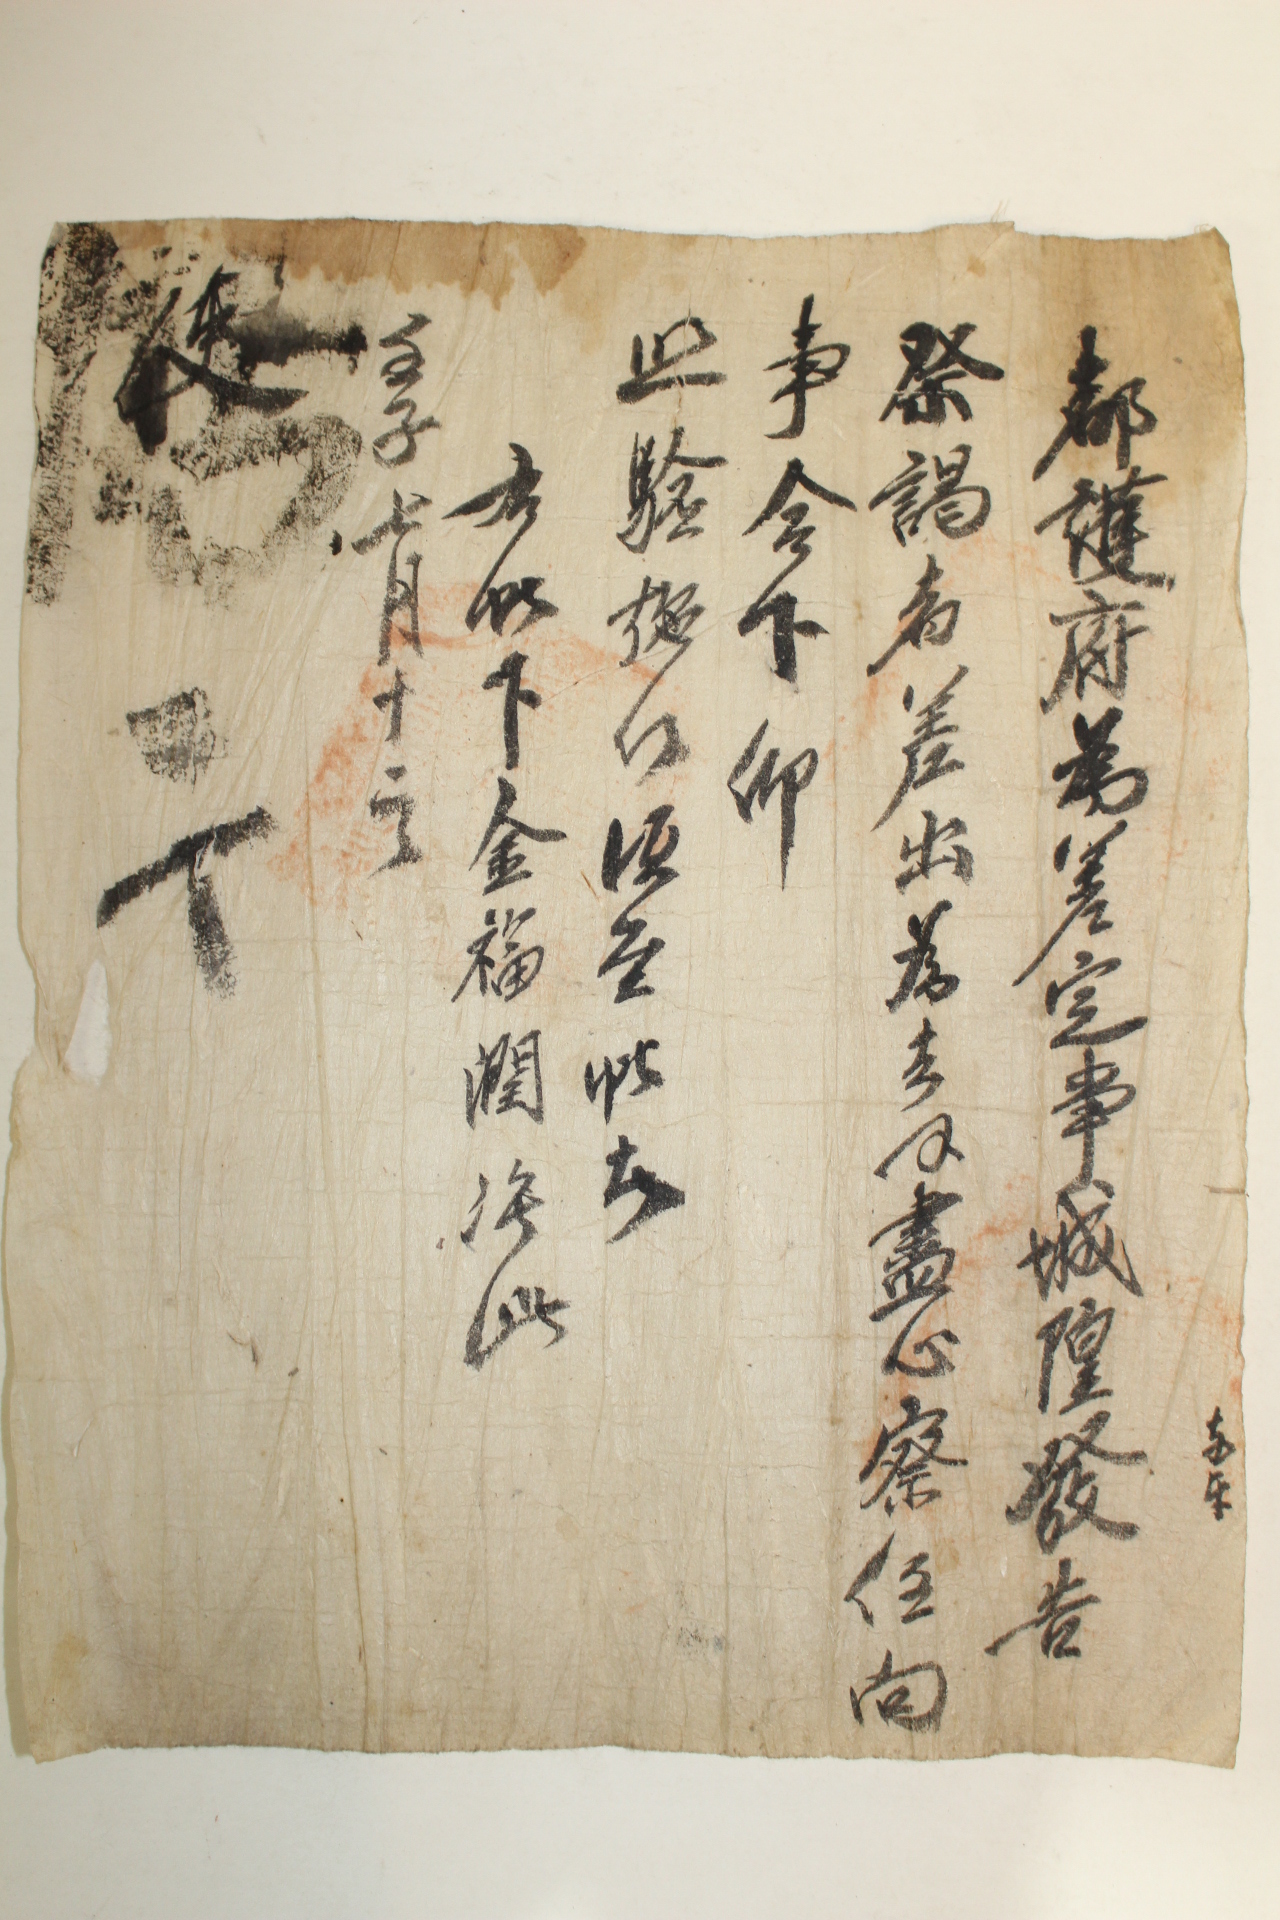 都護府爲差定事城隍發告
祭謁者差出爲去乎盡心察任向
事合下仰
照驗施行須至帖者
右帖下金福潤 准此
壬子七月十二日
使